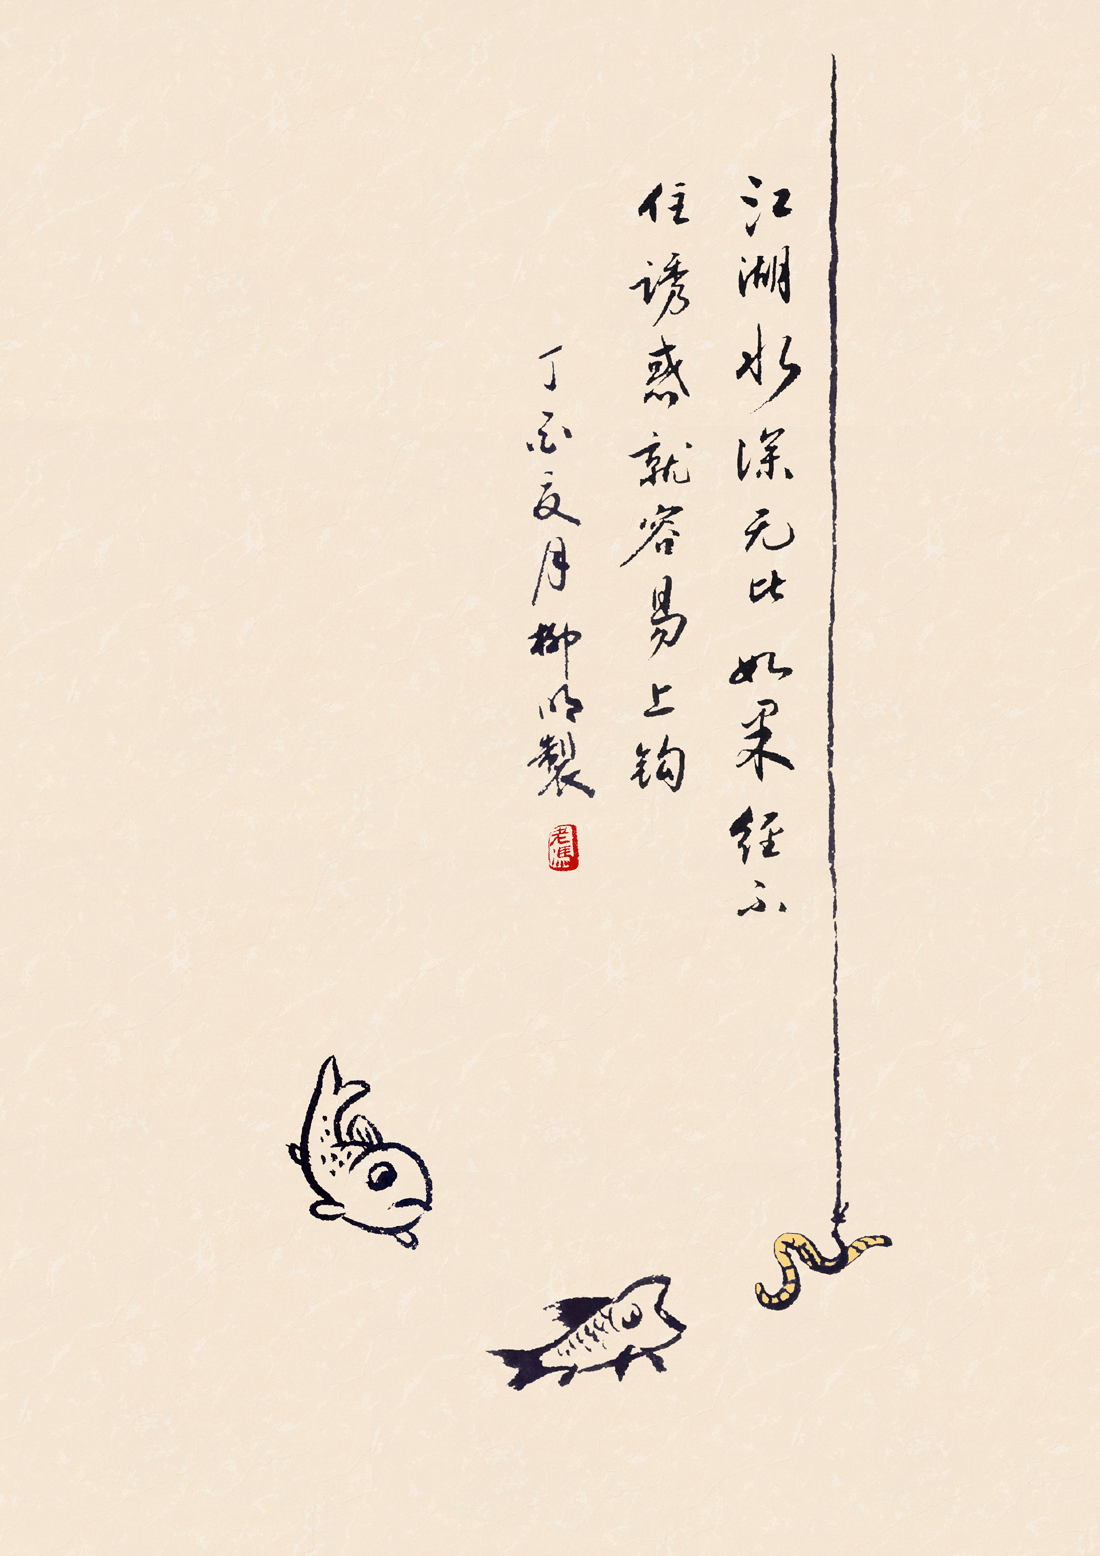 江湖水深无比如果经不
住诱惑就容易上钩
丁酉夏月柳明製
老馮